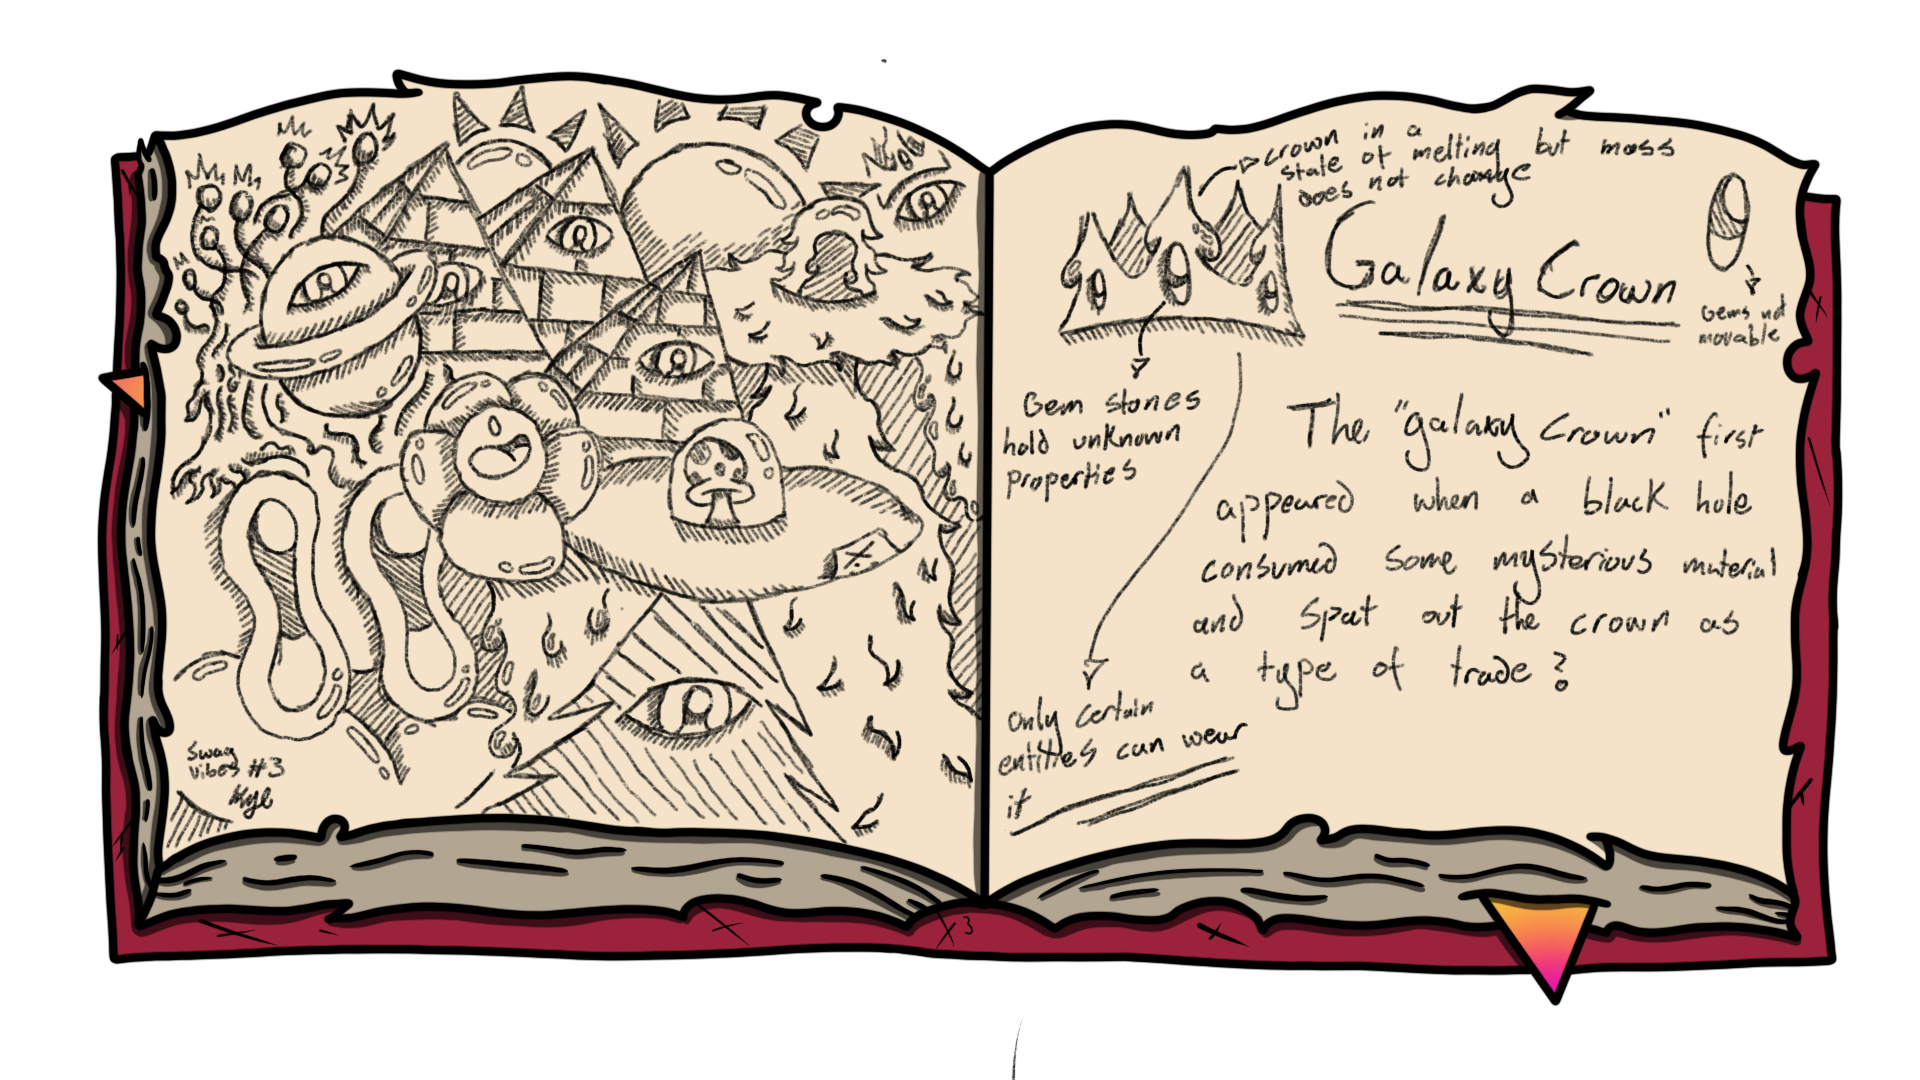 Swag
Vibes #3
Kyle
Crown in a
state of melting but mass
does not change
Galaxy Crown
Gems not
movable
Gem stones
hold unknown
properties
The "galaxy Crown" first
appeared when a black hole
consumed some mysterious material
and spat out the crown as
a type of trade?
Only certain
entities can wear
it
X3